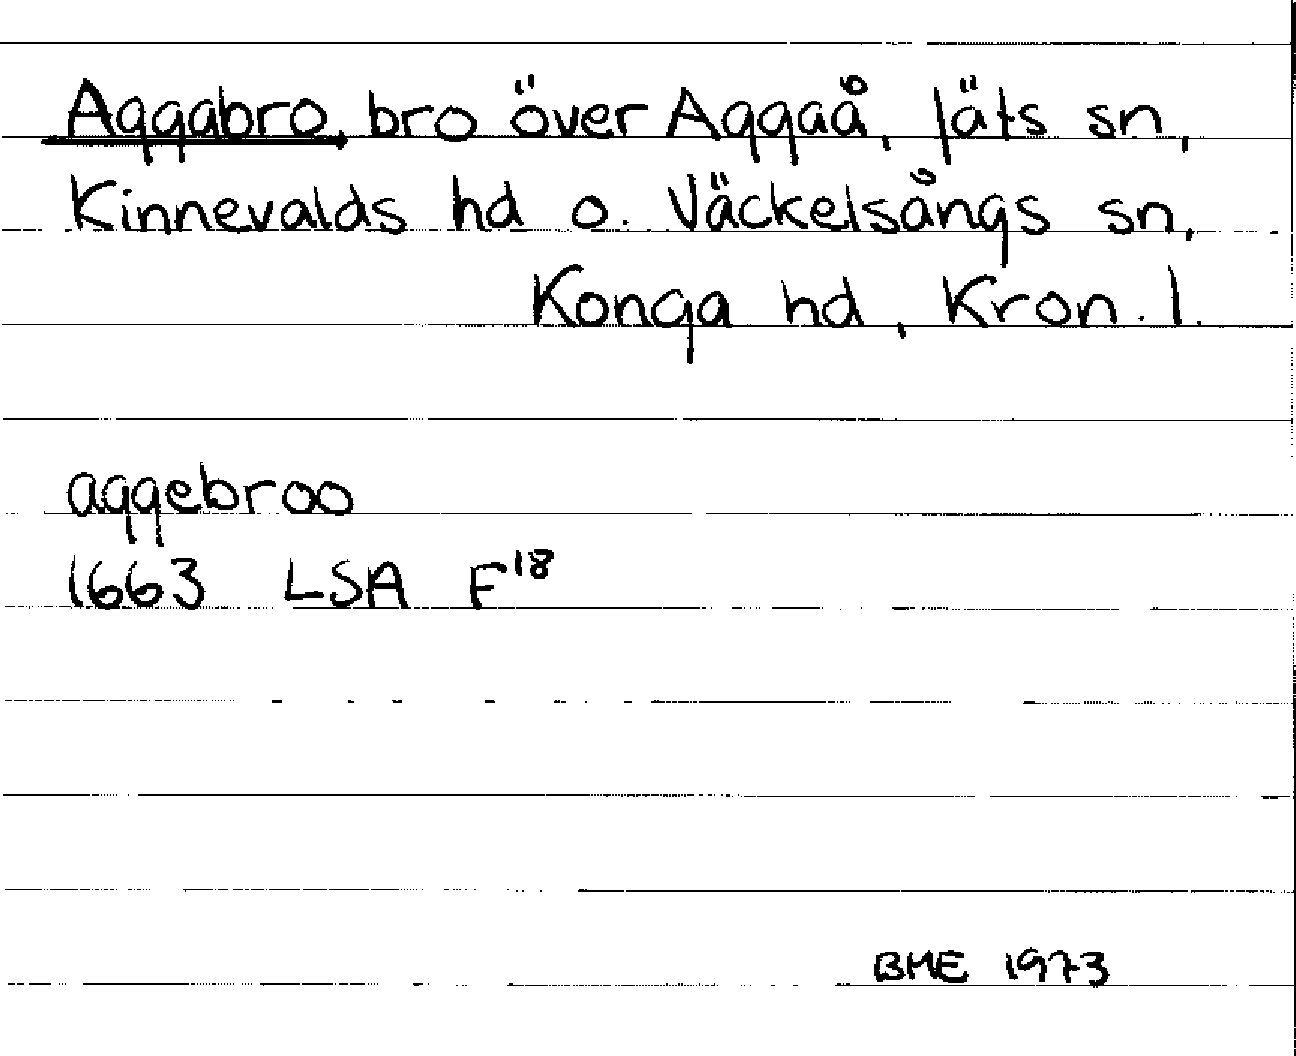 Aggabro, bro över Aggaå, Jäts sn,
Kinnevalds hd o. Väckelsångs sn,
Konga hd, Kron. l.
aggebroo
1663 LSA F18
BME 1973